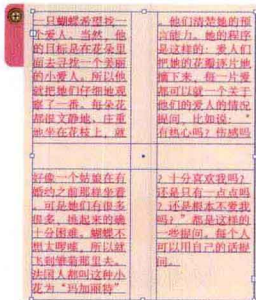 一只蝴蝶希望找一
个爱人。当然，他
的目标是在花朵里
面去寻找一个美丽
的小爱人。所以他
就把她们仔细地观
察了一番。每朵花
都很文静地、庄重
地坐在花枝上，就
好像一个姑娘在有
婚约之前那样坐着
。可是她们有很多
很多，拣起来的确
十分困难。蝴蝶不
想太啰嗦，所以就
飞到雏菊那里去。
法国人都叫这种小
花为“玛加丽特”
。他们清楚她的预
言能力。她的程序
是这样的：爱人们
把她的花瓣逐片地
摘下来，每一片爱
都可以就一个关于
他们的爱人的情况
提问，比如说：“
有热心吗？伤感吗
？十分喜欢我吗？
还是只有一点点吗
？还是根本不爱我
吗？”都是这样的
一些提问。每个人
可以用自己的话提
问。